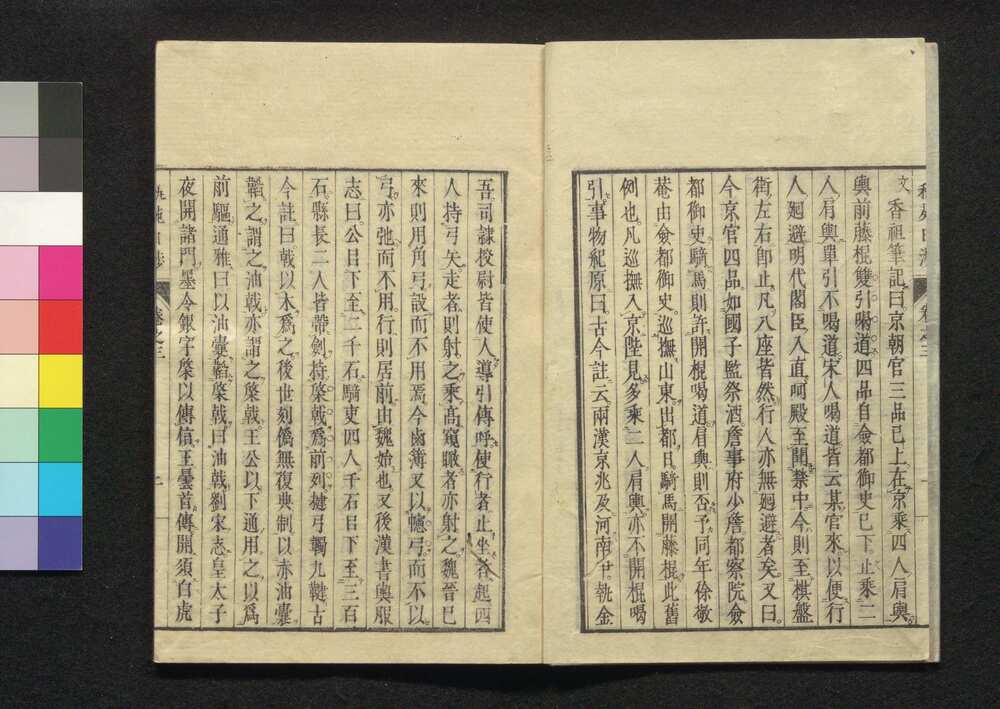 香祖筆記曰京朝官三品已上在京乘四人肩輿
輿前藤棍雙引喝道四品自僉都御史已下止乘二
人肩輿單引不喝道宋人喝道皆云某官來以便行
人廻避明代閣臣入直呵殿至聞禁中今則至棋盤
街左右卽止凡八座皆然行人亦無廻避者矣又曰
今京官四品如國子監祭酒詹事府少詹都察院僉
都御史騎馬則許開棍喝道肩輿則否予同年徐敬
菴由僉都御史巡撫山東出都日騎馬開藤棍此舊
例也凡巡撫入京陛見多乘二人肩輿亦不開棍喝
引事物紀原曰古今註云兩漢京兆及河南尹執金
吾司隷校尉皆使人導引傳呼使行者止坐者起四
人持弓矢走者則射之乘高窺瞰者亦射之魏晉已
來則用角弓設而不用焉今鹵簿又以幰弓而不以
弓亦弛而不用行則居前由魏始也又後漢書輿服
志曰公目下至二千石騎吏四人千石目下至三百
石縣長二人皆帶劍持棨戟爲前列揵弓韣九鞬古
今註曰戟以木爲之後世刻僞無復典制以赤油囊
韜之謂之油戟亦謂之棨戟王公以下通用之以爲
前驅通雅曰以油囊韜棨戟曰油戟劉宋志皇太子
夜開諸門墨令銀字棨以傳信王曇首傳開須白虎